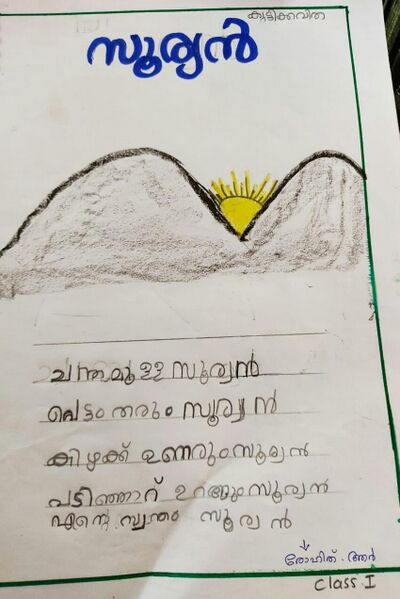 കുട്ടിക്കവിത
സൂര്യൻ
ചന്തമുള്ള സൂര്യൻ
വെട്ടം തരും സൂര്യൻ
കിഴക്ക് ഉണരും സൂര്യൻ
പടിഞ്ഞാറ് ഉറങ്ങും സൂര്യൻ
എന്റെ സ്വന്തം സൂര്യൻ
രോഹിത്. ആർ
Class. I